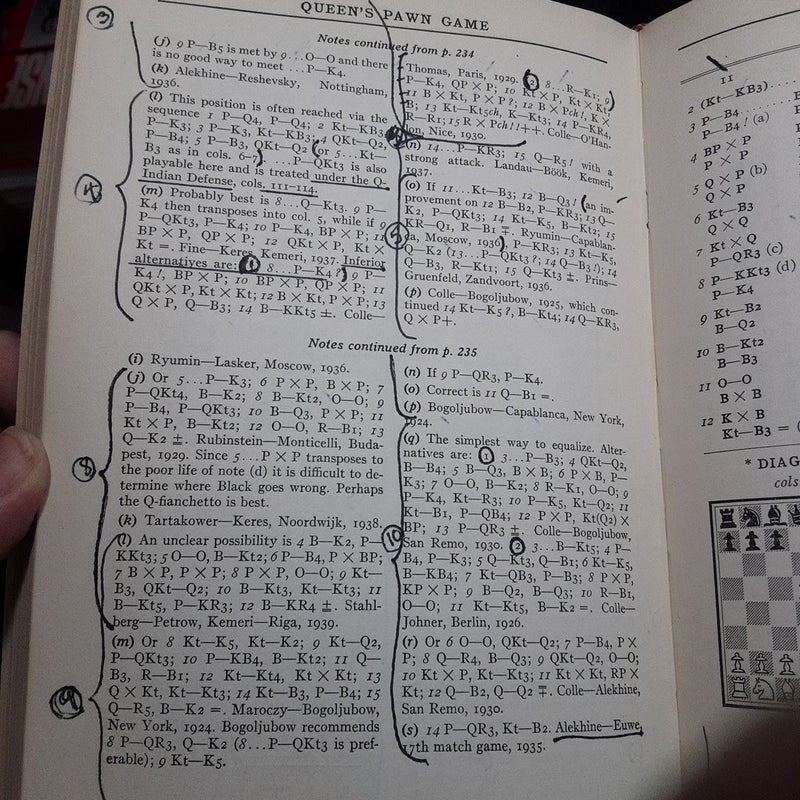 QUEEN'S PAWN GAME
Notes continued from p. 234
3
(j) 9 P—B5 is met by 9...O—O and there
is no good way to meet ...P—K4.
(k) Alekhine—Reshevsky, Nottingham,
1936.
4
(l) This position is often reached via the
sequence 1 P—Q4, P—Q4; 2 Kt—KB3,
P—K3; 3 P—K3, Kt—KB3; 4 QKt—Q2,
P—B4; 5 P—B3, QKt—Q2 (or 5...Kt—
B3 as in cols. 6–7). ...P—QKt3 is also
playable here and is treated under the Q-
Indian Defense, cols. 111–114.
(m) Probably best is 8...Q—Kt3. 9 P—
K4 then transposes into col. 5, while if 9
P—QKt3, P—K4; 10 P—K4, BP × P; 11
BP × P, QP × P; 12 QKt × P, Kt ×
Kt =. Fine—Keres, Kemeri, 1937. Inferior
alternatives are: 1 8...P—K4?; 9 P—
K4!, BP × P; 10 BP × P, QP × P; 11
QKt × P, Kt × Kt; 12 B × Kt, P × P; 13
Q × P, Q—B3; 14 B—KKt5 ±. Colle—
Thomas, Paris, 1929. 2 8...R—K1; 9
P—K4, QP × P; 10 Kt × P, Kt × Kt;
11 B × Kt, P × P?; 12 B × Pch!, K ×
B; 13 Kt—Kt5ch, K—Kt3; 14 P—KR4,
R—R1; 15 R × Pch!!++. Colle—O'Han-
lon, Nice, 1930.
(n) 14...P—KR3; 15 Q—R5! with a
strong attack. Landau—Böök, Kemeri,
1937.
5
(o) If 11...Kt—B3; 12 B—Q3! (an im-
provement on 12 B—B2, P—KR3; 13 Q—
K2, P—QKt3; 14 Kt—K5, B—Kt2; 15
KR—Q1, R—B1 ∓. Ryumin—Capablan-
ca, Moscow, 1936), P—KR3; 13 Kt—K5,
Q—K2 (13...P—QKt3?; 14 Q—B3!); 14
Q—B3, R—Kt1; 15 Q—Kt3 ±. Prins—
Gruenfeld, Zandvoort, 1936.
(p) Colle—Bogoljubow, 1925, which con-
tinued 14 Kt—K5?, B—Kt4; 14 Q—KR3,
Q × P+.
Notes continued from p. 235
(i) Ryumin—Lasker, Moscow, 1936.
8
(j) Or 5...P—K3; 6 P × P, B × P; 7
P—QKt4, B—K2; 8 B—Kt2, O—O; 9
P—B4, P—QKt3; 10 B—Q3, P × P; 11
Kt × P, B—Kt2; 12 O—O, R—B1; 13
Q—K2 ±. Rubinstein—Monticelli, Buda-
pest, 1929. Since 5...P × P transposes to
the poor life of note (d) it is difficult to de-
termine where Black goes wrong. Perhaps
the Q-fianchetto is best.
(k) Tartakower—Keres, Noordwijk, 1938.
(l) An unclear possibility is 4 B—K2, P—
KKt3; 5 O—O, B—Kt2; 6 P—B4, P × BP;
7 B × P, P × P; 8 P × P, O—O; 9 Kt—
B3, QKt—Q2; 10 B—Kt3, Kt—Kt3; 11
B—Kt5, P—KR3; 12 B—KR4 ±. Stahl-
berg—Petrow, Kemeri—Riga, 1939.
9
(m) Or 8 Kt—K5, Kt—K2; 9 Kt—Q2,
P—QKt3; 10 P—KB4, B—Kt2; 11 Q—
B3, R—B1; 12 Kt—Kt4, Kt × Kt; 13
Q × Kt, Kt—Kt3; 14 Kt—B3, P—B4; 15
Q—R5, B—K2 =. Maroczy—Bogoljubow,
New York, 1924. Bogoljubow recommends
8 P—QR3, Q—K2 (8...P—QKt3 is pref-
erable); 9 Kt—K5.
(n) If 9 P—QR3, P—K4.
(o) Correct is 11 Q—B1 =.
(p) Bogoljubow—Capablanca, New York,
1924.
10
(q) The simplest way to equalize. Alter-
natives are: 1 3...P—B3; 4 QKt—Q2,
B—B4; 5 B—Q3, B × B; 6 P × B, P—
K3; 7 O—O, B—K2; 8 R—K1, O—O; 9
P—K4, Kt—R3; 10 P—K5, Kt—Q2; 11
Kt—B1, P—QB4; 12 P × P, Kt(Q2) ×
BP; 13 P—QR3 ±. Colle—Bogoljubow,
San Remo, 1930. 2 3...B—Kt5; 4 P—
B4, P—K3; 5 Q—Kt3, Q—B1; 6 Kt—K5,
B—KB4; 7 Kt—QB3, P—B3; 8 P × P,
KP × P; 9 B—Q2, B—Q3; 10 R—B1,
O—O; 11 Kt—Kt5, B—K2 =. Colle—
Johner, Berlin, 1926.
(r) Or 6 O—O, QKt—Q2; 7 P—B4, P ×
P; 8 Q—R4, B—Q3; 9 QKt—Q2, O—O;
10 Kt × P, Kt—Kt3; 11 Kt × Kt, RP ×
Kt; 12 Q—B2, Q—Q2 ∓. Colle—Alekhine,
San Remo, 1930.
(s) 14 P—QR3, Kt—B2. Alekhine—Euwe,
17th match game, 1935.
11
2 (Kt—KB3)
3 P—B4
P—B4! (a)
4 BP × P
P × P
5 Q × P (b)
Q × P
6 Kt—B3
Q × Q
7 Kt × Q
P—QR3 (c)
8 P—KKt3 (d)
P—K4
9 Kt—B2
B—Q2
10 B—Kt2
B—B3
11 O—O
B × B
12 K × B
Kt—B3 =
* DIAG
cols